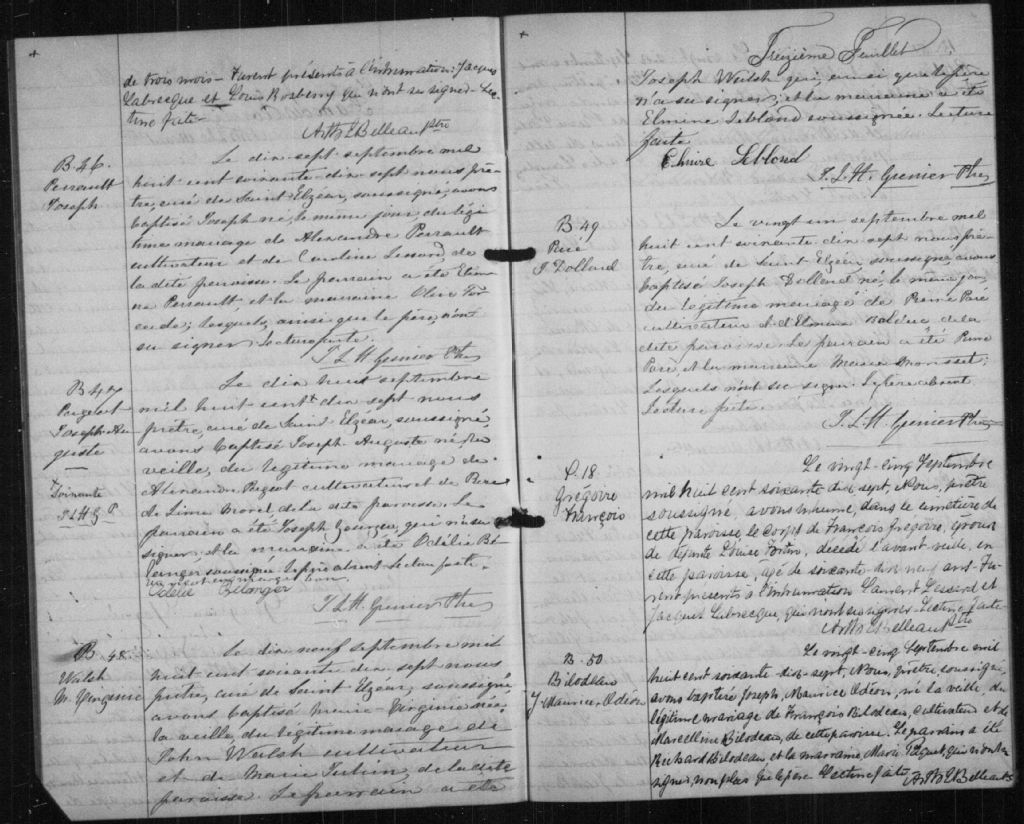 de trois mois - Furent présents à l'inhumation: Jacques
Labrecque et Louis Rosberry qui n'ont su signer - Lec-
ture faite -
Arth. L Belleau Ptre
B. 46.
Perrault
Joseph
Le dix sept septembre mil
huit cent soixante-dix sept nous prê-
tre, curé de Saint Elzéar, soussigné, avons
baptisé Joseph né, le même jour, du légi
time mariage de Alexandre Perrault
cultivateur et de Caroline Lessard, de
la dite paroisse. Le parrain a été Etien
ne Perrault, et la marraine
lesquels, ainsi que le père, n'ont
su signer. Lecture faite.
T. L. H. Grenier Ptre
B. 47
Joseph Au
guste
—
+ Soixante
T L H G P
Le dix huit septembre
mil huit cent + dix sept nous
prêtre, curé de Saint Elzéar, soussigné,
avons baptisé Joseph Auguste né, la
veille, du légitime mariage de
cultivateur et de
de Lime Morel de la dite paroisse. Le
parrain a été Joseph Georges, qui n'a su
signer, et la marraine a été Odélie Bé
langer soussignée. Le père absent. Lecture faite.
un renvoi en marge bon
Odélie Bélanger
T. L. H. Grenier Ptre
B. 48
Walsh
M. Virginie
Le dix neuf septembre mil
huit cent soixante dix sept nous
prêtre, curé de Saint Elzéar, soussigné,
avons baptisé Marie-Virginie née,
la veille, du légitime mariage de
John Walsh cultivateur
et de Marie Julien, de la dite
paroisse. Le parrain a été
Treizième Feuillet
Joseph Walsh qui ainsi que le père
n'a su signer; et la marraine a été
Elmire Leblond soussignée. Lecture
faite
Elmire Leblond
T. L. H. Grenier Ptre
B 49
Paré
J. Dollard
Le vingt un septembre mil
huit cent soixante dix sept nous prê
tre, curé de Saint Elzéar soussigné, avons
baptisé Joseph Dollard né, le même jour,
du légitime mariage de Pierre Paré
cultivateur et d'Elmire Bolduc de la
dite paroisse. Le parrain a été Pierre
Paré et la marraine Marie Morisset;
Lesquels n'ont su signer. Le père absent.
Lecture faite.
T. L. H. Grenier Ptre
S. 18
Grégoire
François
Le vingt-cinq Septembre
mil huit cent soixante dix sept, Nous, prêtre
soussigné, avons inhumé, dans le cimetière de
cette paroisse, le corps de François Grégoire, époux
de défunte Louise Fortin, décédé l'avant veille, en
cette paroisse, âgé de soixante-dix neuf ans - Fu-
rent présents à l'inhumation Laurent Lessard et
Jacques Labrecque, qui n'ont su signer - Lecture faite
Arth. L Belleau Ptre
B - 50
Bilodeau
J Maurice Odéon
Le vingt-cinq Septembre mil
huit cent soixante dix-sept, Nous, prêtre, soussigné,
avons baptisé Joseph, Maurice Odéon, né la veille du
légitime mariage de François Bilodeau, cultivateur et de
Marcelline Bilodeau, de cette paroisse. Le parrain a été
Richard Bilodeau, et la marraine, Marie qui n'ont su
signer, non plus que le père Lecture faite
Arth. L Belleau Ptre